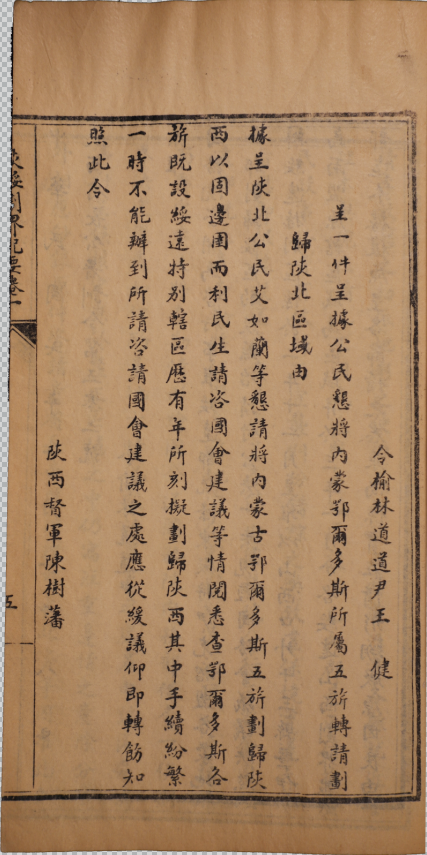 令榆林道道尹王　健
呈一件呈據公民懇將內蒙鄂爾多斯所屬五旂轉請劃
歸陝北區域由
據呈陝北公民艾如蘭等懇請將內蒙古鄂爾多斯五旂劃歸陝
西以固邊圉而利民生請咨國會建議等情閱悉查鄂爾多斯各
旂既設綏遠特別轄區歷有年所刻擬劃歸陝西其中手續紛繁
一時不能辦到所請咨請國會建議之處應從緩議仰即轉飭知
照此令
陝西督軍陳樹藩
陝綏劃界紀要卷一
五